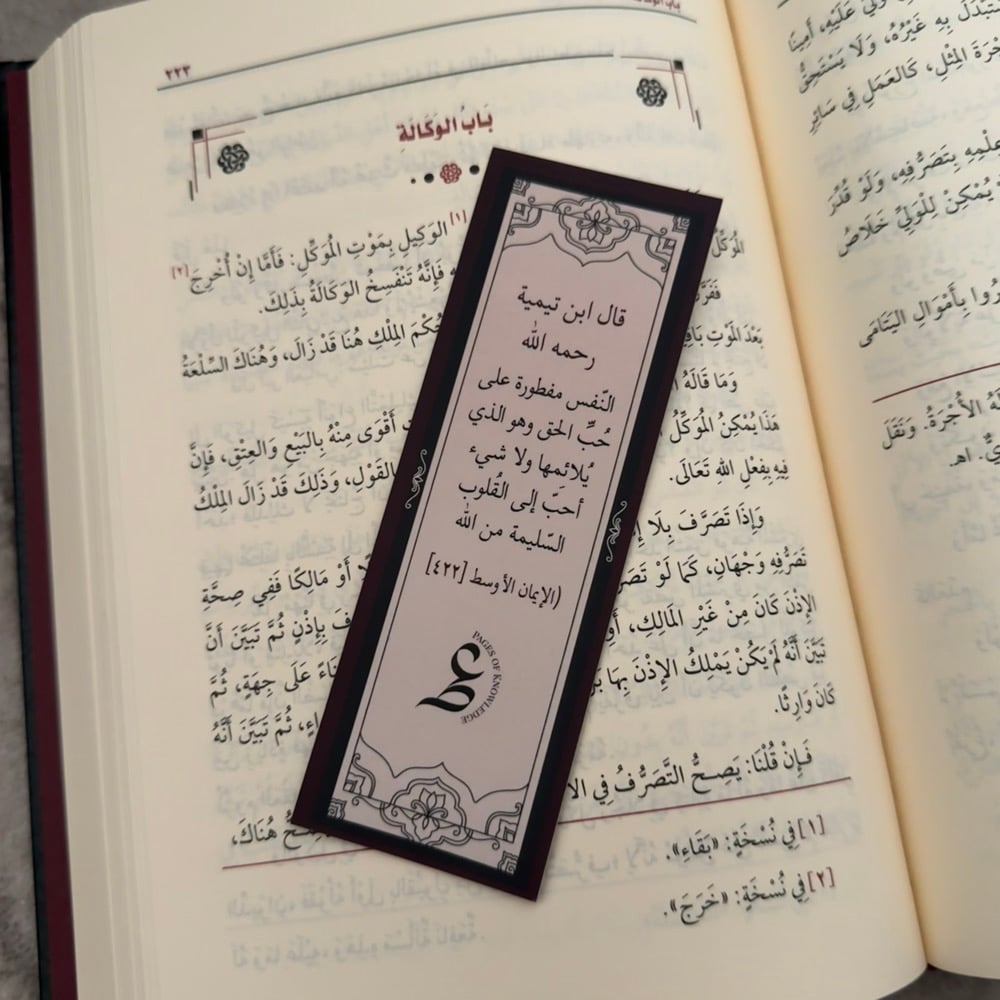 باب الوكالة
٢٢٣
بَابُ الوَكَالَةِ
[١] الوَكِيلِ بِمَوْتِ المُوَكِّلِ: فَأَمَّا إِنْ أُخْرِجَ [٢]
المُوَكِّلُ
فَإِنَّهُ تَنْفَسِخُ الوَكَالَةُ بِذَلِكَ.
حُكْمَ المِلْكِ هُنَا قَدْ زَالَ، وَهُنَاكَ السِّلْعَةُ
بَعْدَ المَوْتِ
وَمَا قَالَهُ
أَقْوَى مِنْهُ بِالبَيْعِ وَالعِتْقِ، فَإِنَّ
هَذَا يُمْكِنُ المُوَكِّلُ
بِالقَوْلِ، وَذَلِكَ قَدْ زَالَ المِلْكُ
فِيهِ بِفِعْلِ اللهِ تَعَالَى.
وَإِذَا تَصَرَّفَ بِلَا
أَوْ مَالِكًا فَفِي صِحَّةِ
تَصَرُّفِهِ وَجْهَانِ، كَمَا لَوْ
بِإِذْنٍ ثُمَّ تَبَيَّنَ أَنَّ
الإِذْنَ كَانَ مِنْ غَيْرِ المَالِكِ، أَوْ
عَلَى جِهَةٍ، ثُمَّ
تَبَيَّنَ أَنَّهُ لَمْ يَكُنْ يَمْلِكُ الإِذْنَ بِهَا
ثُمَّ تَبَيَّنَ أَنَّهُ
كَانَ وَارِثًا.
فَإِنْ قُلْنَا: يَصِحُّ التَّصَرُّفُ فِي
هُنَاكَ،
[١] فِي نُسْخَةٍ: «بَقَاءِ».
[٢] فِي نُسْخَةٍ: «خَرَجَ».
قال ابن تيمية
رحمه الله
النّفس مفطورة على
حُبِّ الحق وهو الذي
يُلائمها ولا شيء
أحبّ إلى القُلوب
السّليمة من الله
(الإيمان الأوسط [٤٢٢]
PAGES OF KNOWLEDGE
عَلَيْهِ، أَمِينًا
بِهِ غَيْرُهُ، وَلَا يَسْتَحِقُّ
المِثْلِ، كَالعَمَلِ فِي سَائِرِ
بِتَصَرُّفِهِ، وَلَوْ قُدِّرَ
يُمْكِنْ لِلْوَلِيِّ خَلَاصُ
بِأَمْوَالِ اليَتَامَى
الأُجْرَةُ. وَنَقَلَ
اهـ.